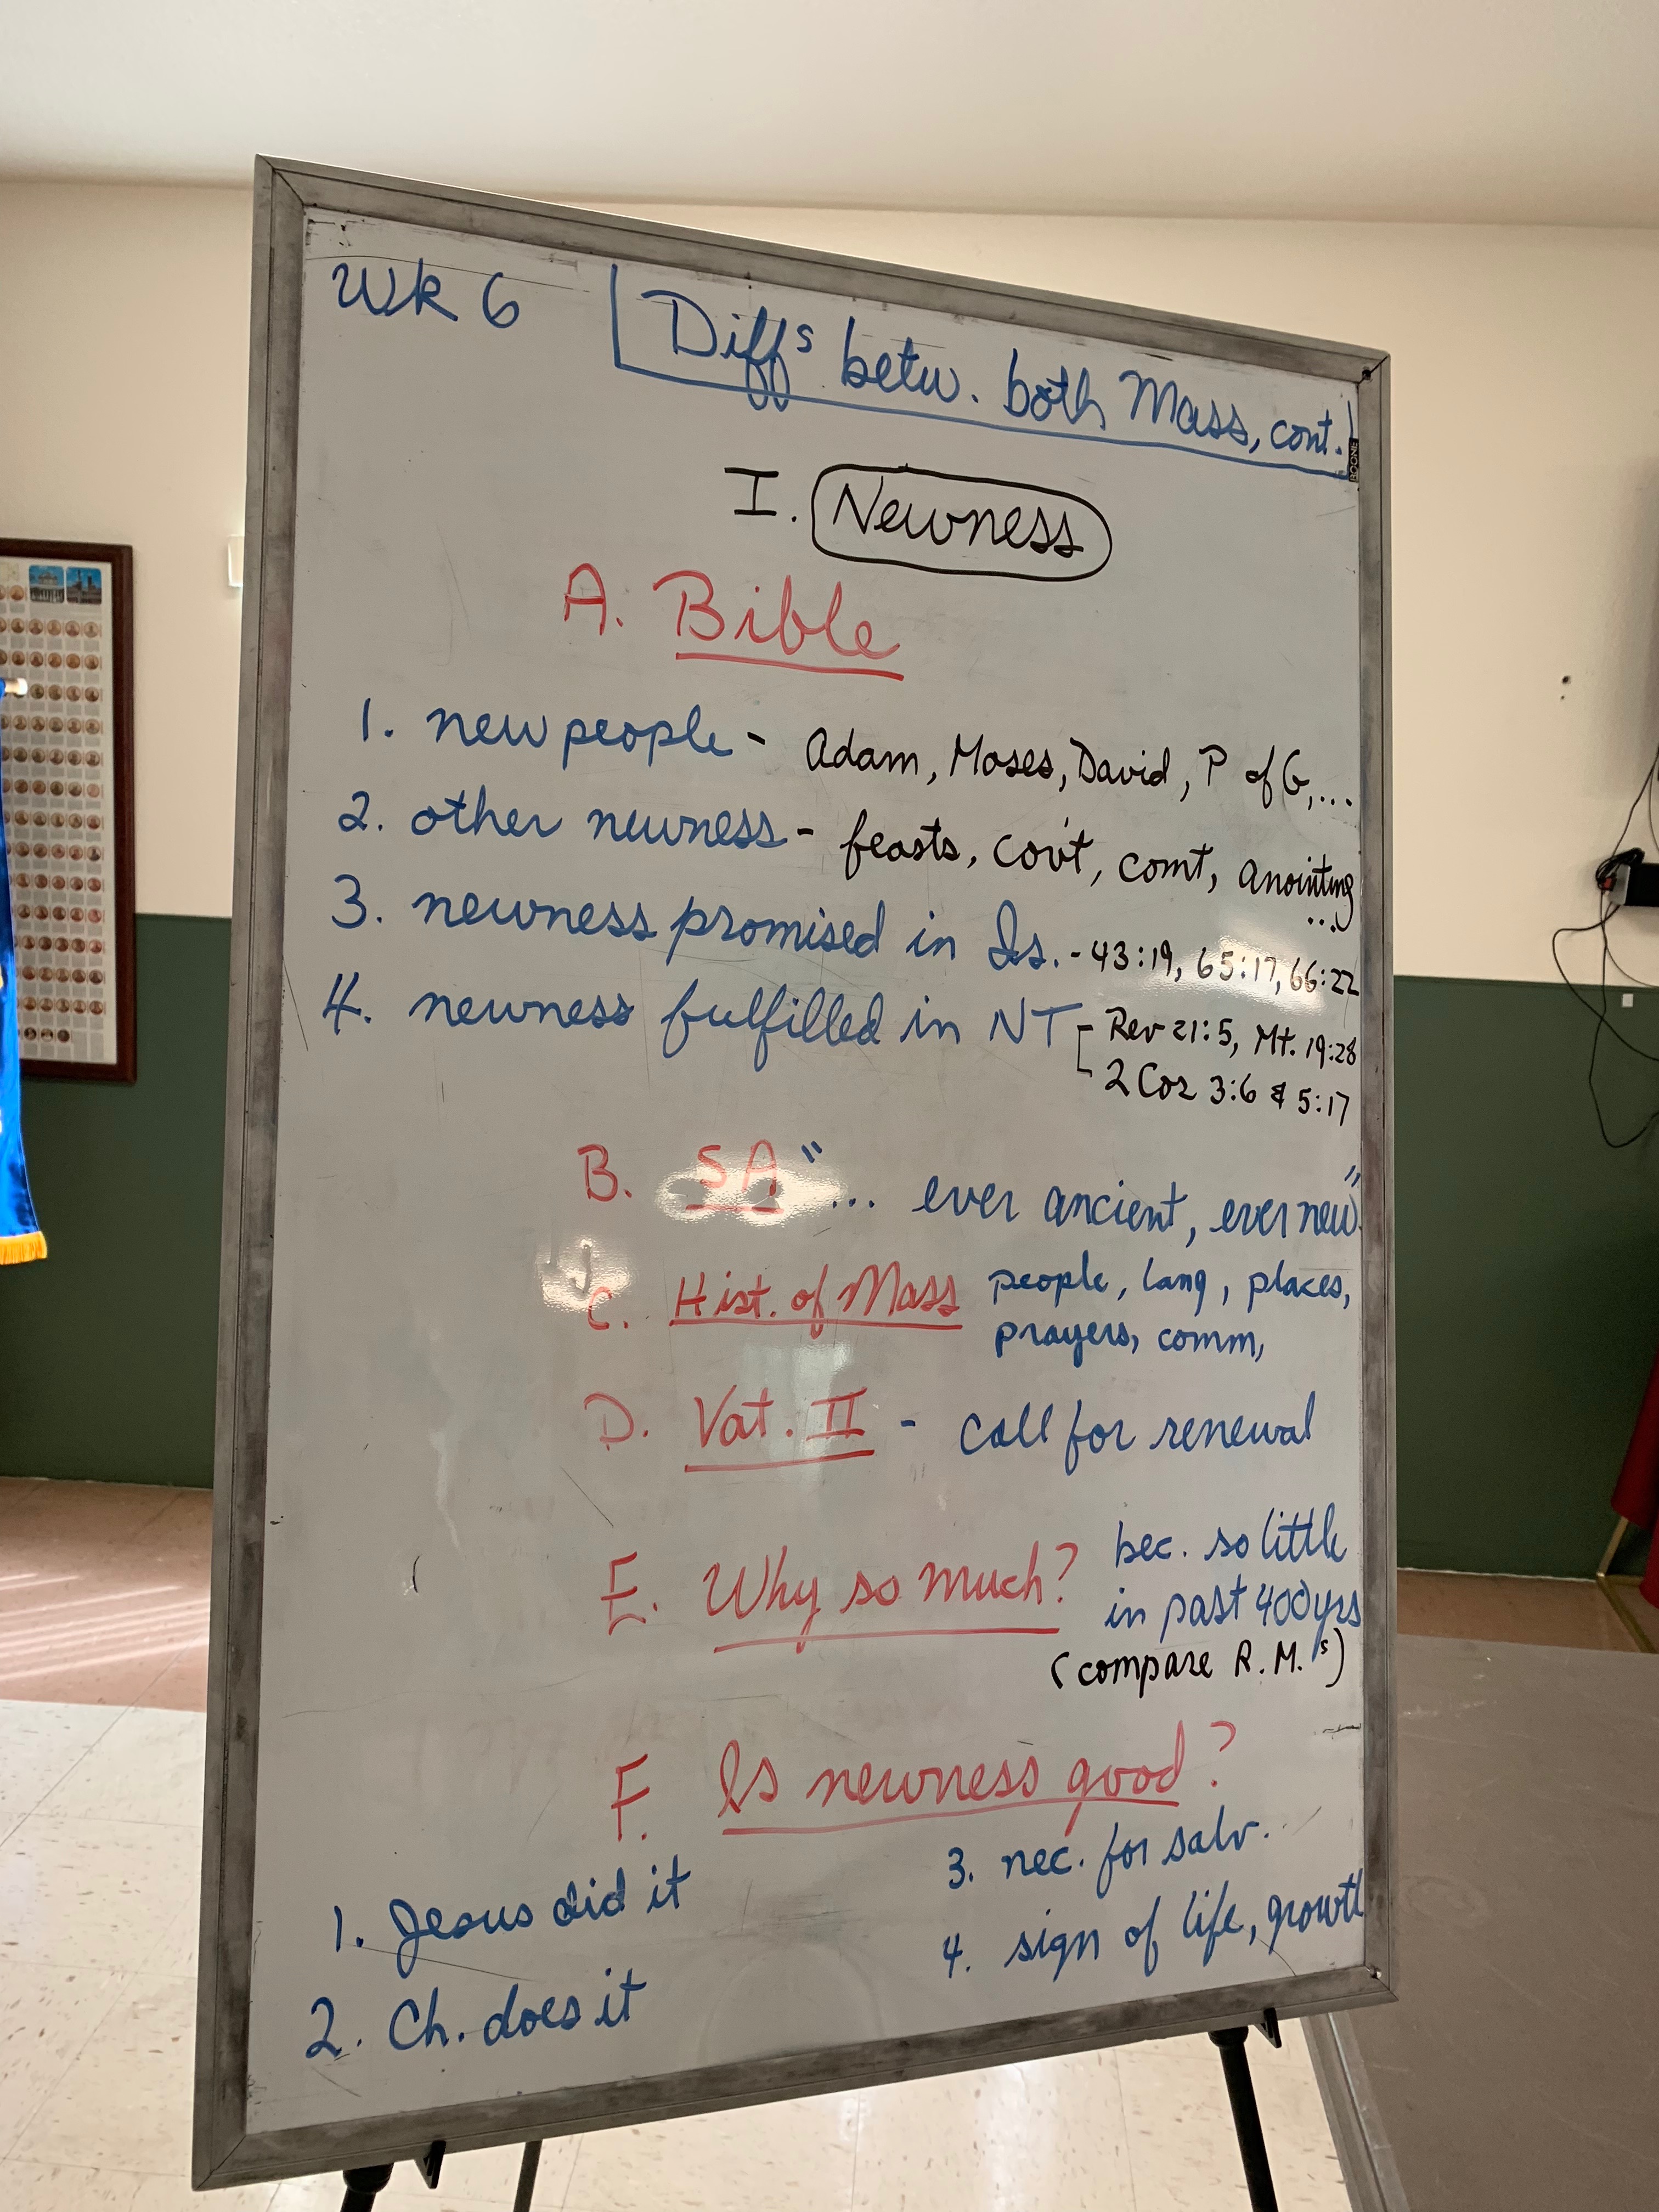 Wk 6
Diffs betw. both Mass, cont.
BOONE
I. Newness
A. Bible
1. new people - Adam, Moses, David, P of G,...
2. other newness - feasts, cov't, comt, anointing
...
3. newness promised in Is. - 43:19, 65:17, 66:22
4. newness fulfilled in NT - Rev 21:5, Mt. 19:28
2 Cor 3:6 & 5:17
B. SA "... ever ancient, ever new"
C. Hist. of Mass people, lang, places,
prayers, comm,
D. Vat. II - call for renewal
E. Why so much? bec. so little
in past 400 yrs
(compare R.M.s)
F. Is newness good?
1. Jesus did it
2. Ch. does it
3. nec. for salv.
4. sign of life, growth